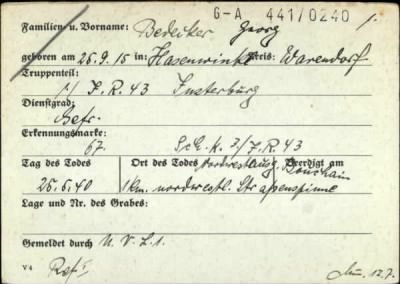 G-A 441/0240
Familien- u. Vorname: Bedeiker Georg 1.
geboren am 26.9.15 in: Hasenwinkel Kreis: Warendorf
Truppenteil:
1/ J.R. 43 Insterburg
Dienstgrad:
Gefr.
Erkennungsmarke:
67 Sch. K. 3/J.R. 43
Tag des Todes Ort des Todes nordwestausg. Bouchain Beerdigt am
26.5.40 1 km. nordwestl. Straßenspinne
Lage und Nr. des Grabes:
Gemeldet durch U.V.L.1.
V 4 Ref I 12.7.